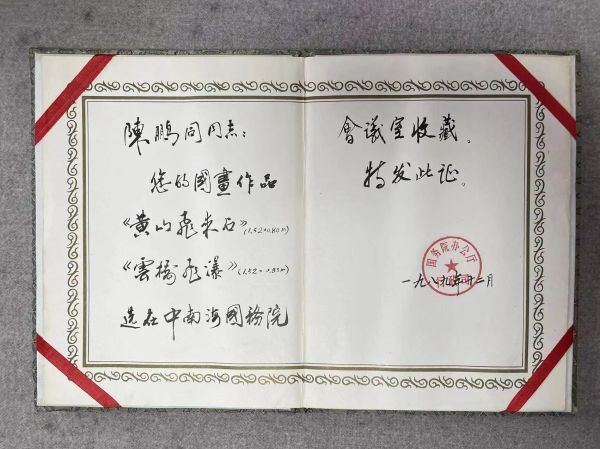 陳鹏同同志：
您的國畫作品
《黄山飛来石》(1.52×0.80m)
《雲樹飛瀑》(1.52×0.83m)
选在中南海國務院
會議室收藏。
特发此证。
国务院办公厅
一九八九年十二月